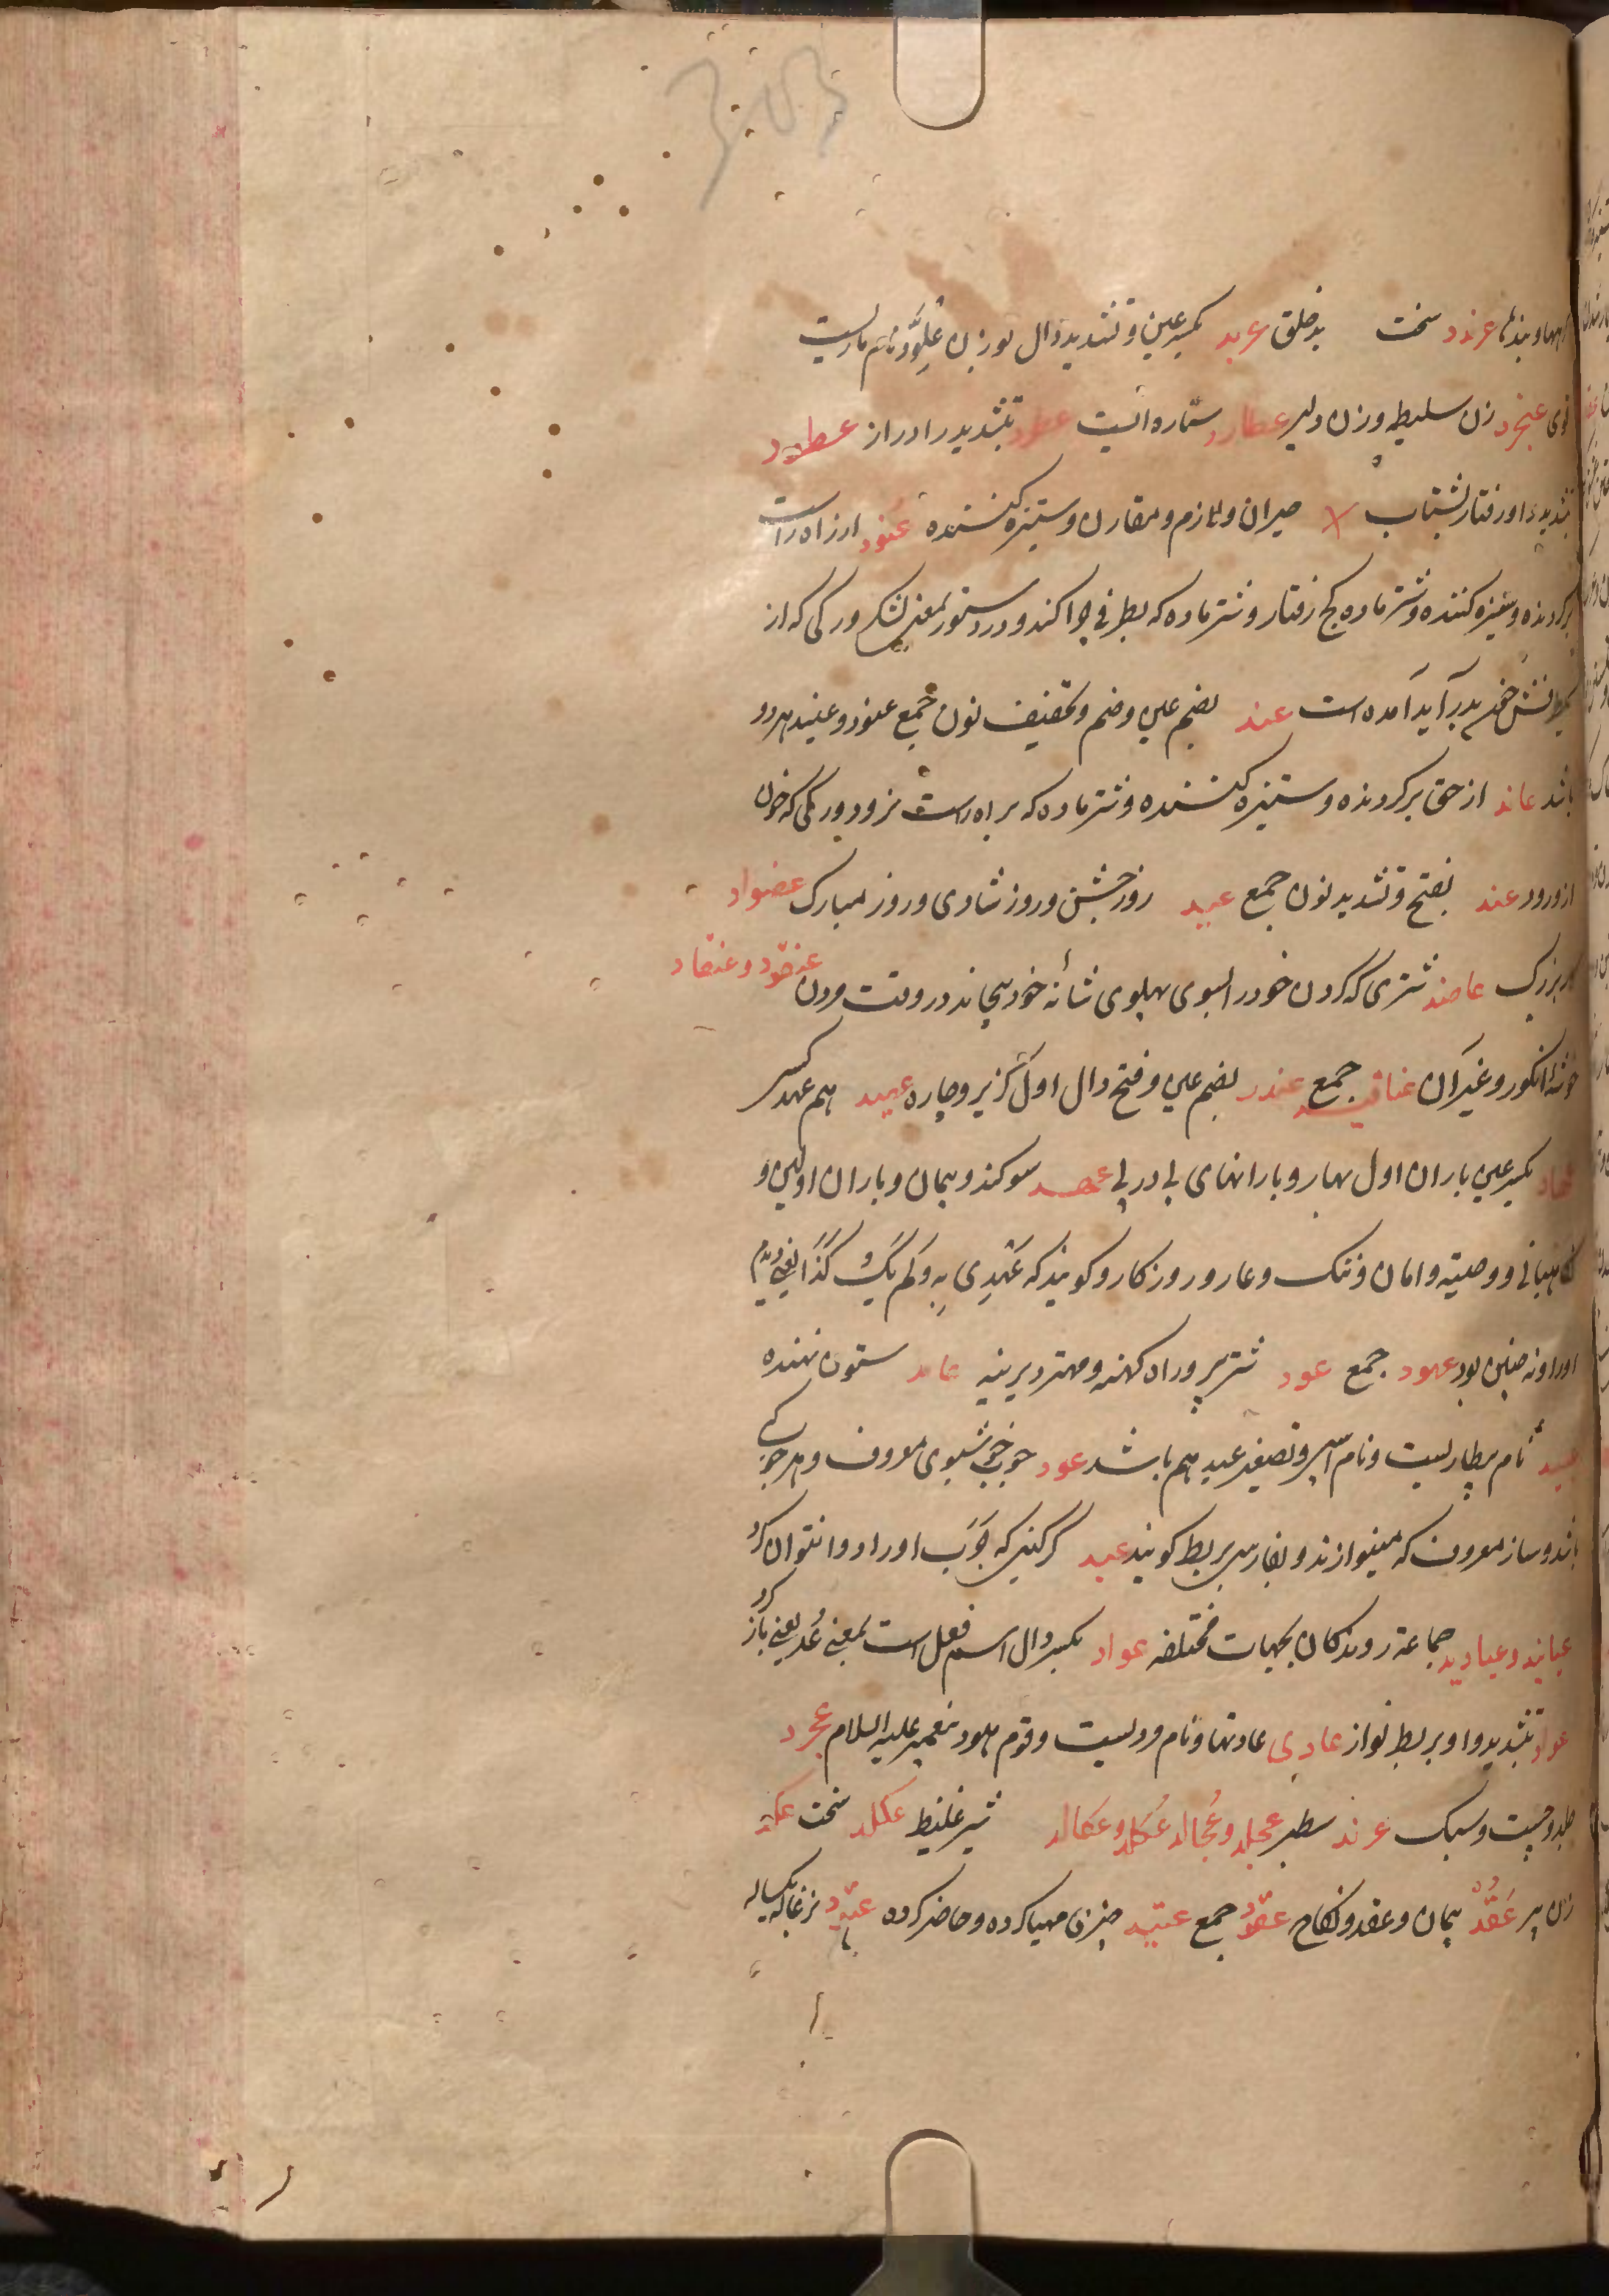 وبندها عرندد سخت بدخلق عربد بکسر عین و تشدید دال بوزن علودّ نام ماریست
قوی عنجرد زن سلیطه و زن دلیر عطارد ستاره ایست عطرد بتشدید را دراز عطود
بتشدید واو رفتار بشتاب حیران و ملازم و مقارن و ستیزه کننده عنود از راه راست
برکردنده و ستیزه کننده و شتر ماده کج رفتار و شتر ماده که بطرفی چرا کند و در دستور بمعنی لشکر و رکی که از
یکطرفش خون بدر آید آمده است عند بضم عین و ضم و تخفیف نون جمع عنود و عنید هردو
باشد عاند از حق برکردنده و ستیزه کننده و شتر ماده که براه راست نرود و رکی که خون
ازو رود عند بفتح و تشدید نون جمع عید روز جشن و روز شادی و روز مبارک عضواد
کار بزرک عاصد شتری که کردن خود را بسوی پهلوی شانه خود پیچاند در وقت مردن عنقود و عنقاد
خوشه انکور و غیر آن عناقید جمع عندد بضم عین و فتح دال اول کزیر و چاره عهید هم عهد کسی
عهاد بکسر عین باران اول بهار و بارانهای پی در پی عهد سوکند و پیمان و باران اولین و
نکاهبانی و وصیته و امان و ننک و عار و روزکار و کویند که عَهْدِی بِهِ وَلَم یَکُ کَذَا یعنی دیدم
او را و نه چنین بود عهود جمع عود شتر پیر و راه کهنه و مهتر دیرینه عامد ستون نهنده
عبید نام بیطاریست و نام اسپی و تصغیر عبد هم باشد عود چوب خوشبوی معروف و هر چوبی که
باشد و ساز معروف که مینوازند و بفارسی بربط کویند عبد کرکین که جَرَب او را دوا نتوان کرد
عبابید و عبادید جماعة روندکان بجهات مختلفه عواد بکسر دال اسم فعل است بمعنی عُد یعنی باز کرد
عواد بتشدید واو بربط نواز عادی عادتها و نام مردیست و قوم هود پیغمبر علیه السلام عجرد
جلد و چست و سبک عرند سطبر عجلد و عُجالد عُکلد و عُکالد شیر غلیظ عکلد سخت عکد
زن پیر عَقْدٌ پیمان و عقد و نکاح عقود جمع عتید چیزی مهیا کرده و حاضر کرده عتود بزغاله یکساله